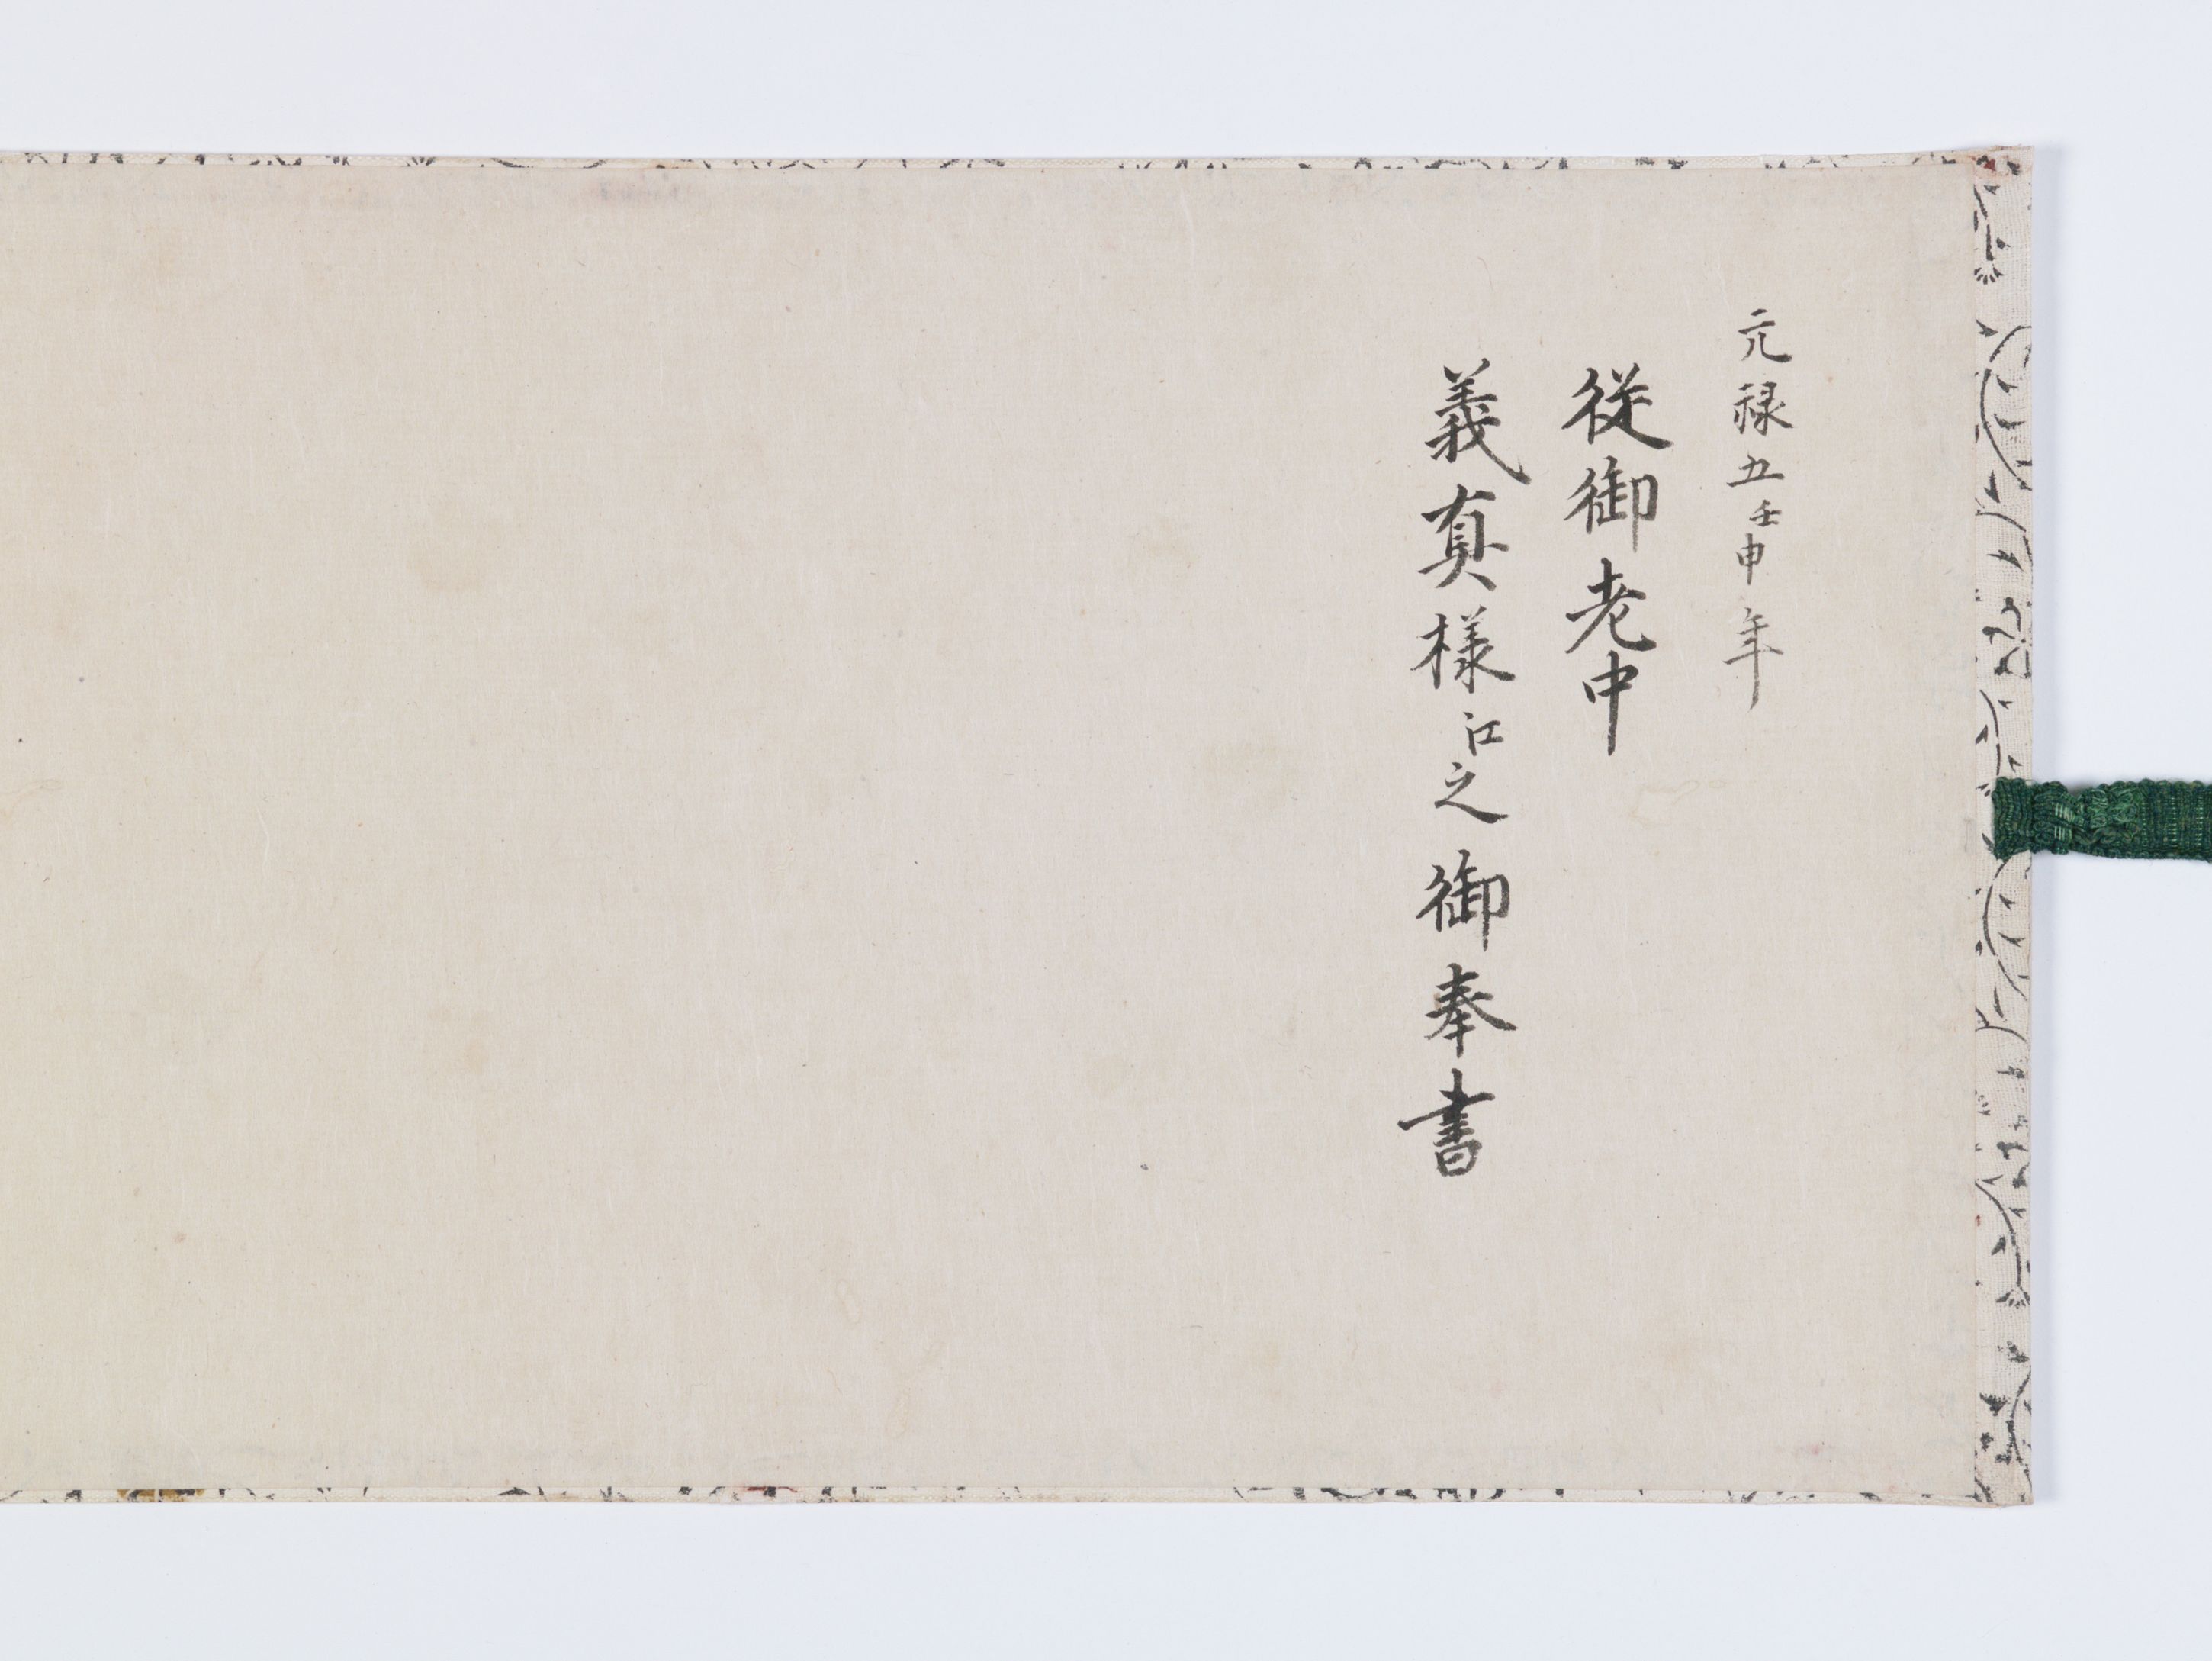 元禄五壬申年
従御老中
義真様江之御奉書